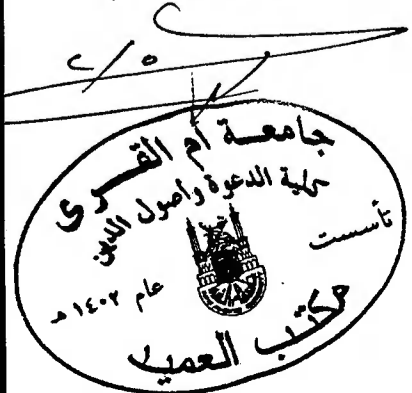 ٢/٥
جامعة أم القرى
كلية الدعوة وأصول الدين
تأسست
عام ١٤٠٢ هـ
مكتب العميد